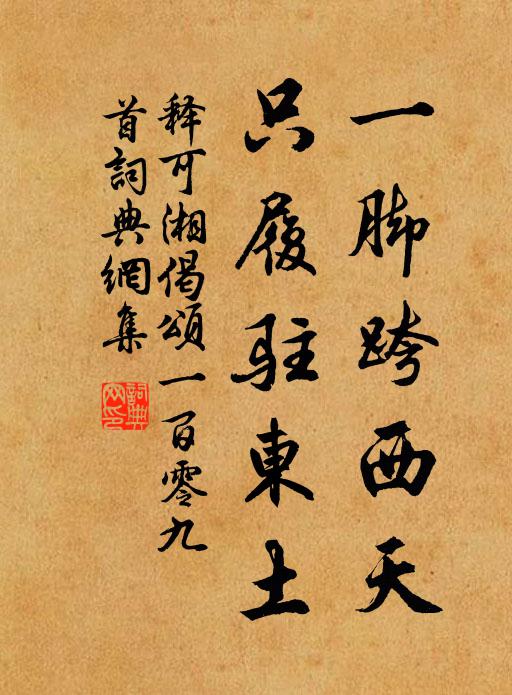 一脚跨西天
只履駐東土
释可湘偈頌一百零九
首詞典網集
詞典
网印